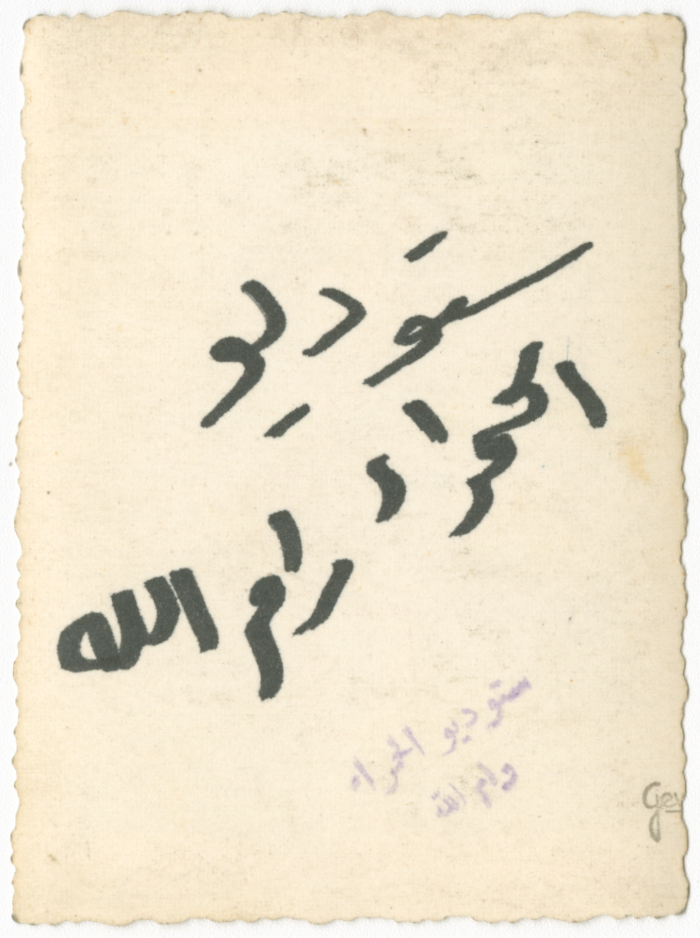 ستوديو
الحمراء
رام الله
ستوديو الحمراء
رام الله
Gev